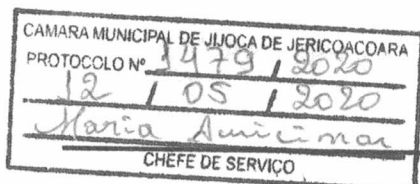 CAMARA MUNICIPAL DE JIJOCA DE JERICOACOARA
PROTOCOLO Nº 1479 / 2020
12 / 05 / 2020
Maria
CHEFE DE SERVIÇO